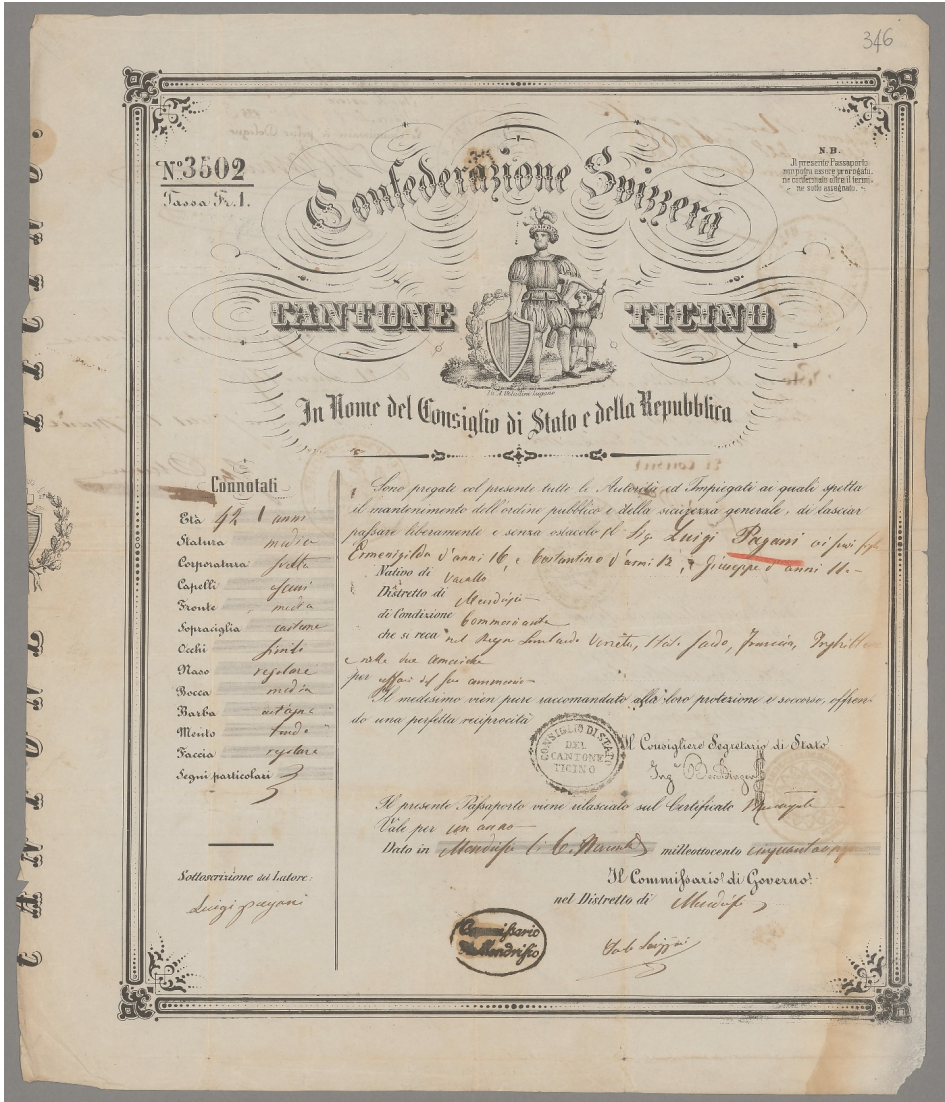 346
Nº 3502
Tassa Fr. 1.
N.B.
Il presente Passaporto
non potrà essere prorogato,
ne confermato oltre il termi-
ne sotto assegnato.
Confederazione Svizzera
CANTONE TICINO
In Nome del Consiglio di Stato e della Repubblica
Connotati
Età 42 anni
Statura media
Corporatura svelta
Capelli scuri
Fronte media
Sopraciglia castane
Occhi simili
Naso regolare
Bocca media
Barba castagna
Mento tondo
Faccia regolare
Segni particolari
Sottoscrizione del Latore:
Luigi pagani
Sono pregate col presente tutte le Autorità ed Impiegati ai quali spetta
il mantenimento dell'ordine pubblico e della sicurezza generale, di lasciar
passare liberamente e senza ostacolo il Sig. Luigi Pagani coi suoi figli
Ermenigilda d'anni 16, e Costantino d'anni 12, e Giuseppe d'anni 11
Nativo di Vacallo
Distretto di Mendrisio
di Condizione Commerciante
che si reca nel Regno Lombardo Veneto, Stati Sardo, Francia, Inghilterra
e nelle due Americhe
per affari del suo commercio
Il medesimo vien pure raccomandato alla loro protezione e soccorso, offren-
do una perfetta reciprocità
CONSIGLIO DI STATO
DEL
CANTONE
TICINO
Il Consigliere Segretario di Stato
Il presente Passaporto viene rilasciato sul Certificato Municipale
Vale per un anno
Dato in Mendrisio li 6 Novembre milleottocento
Il Commissario di Governo
nel Distretto di Mendrisio
Commissario
di Mendrisio